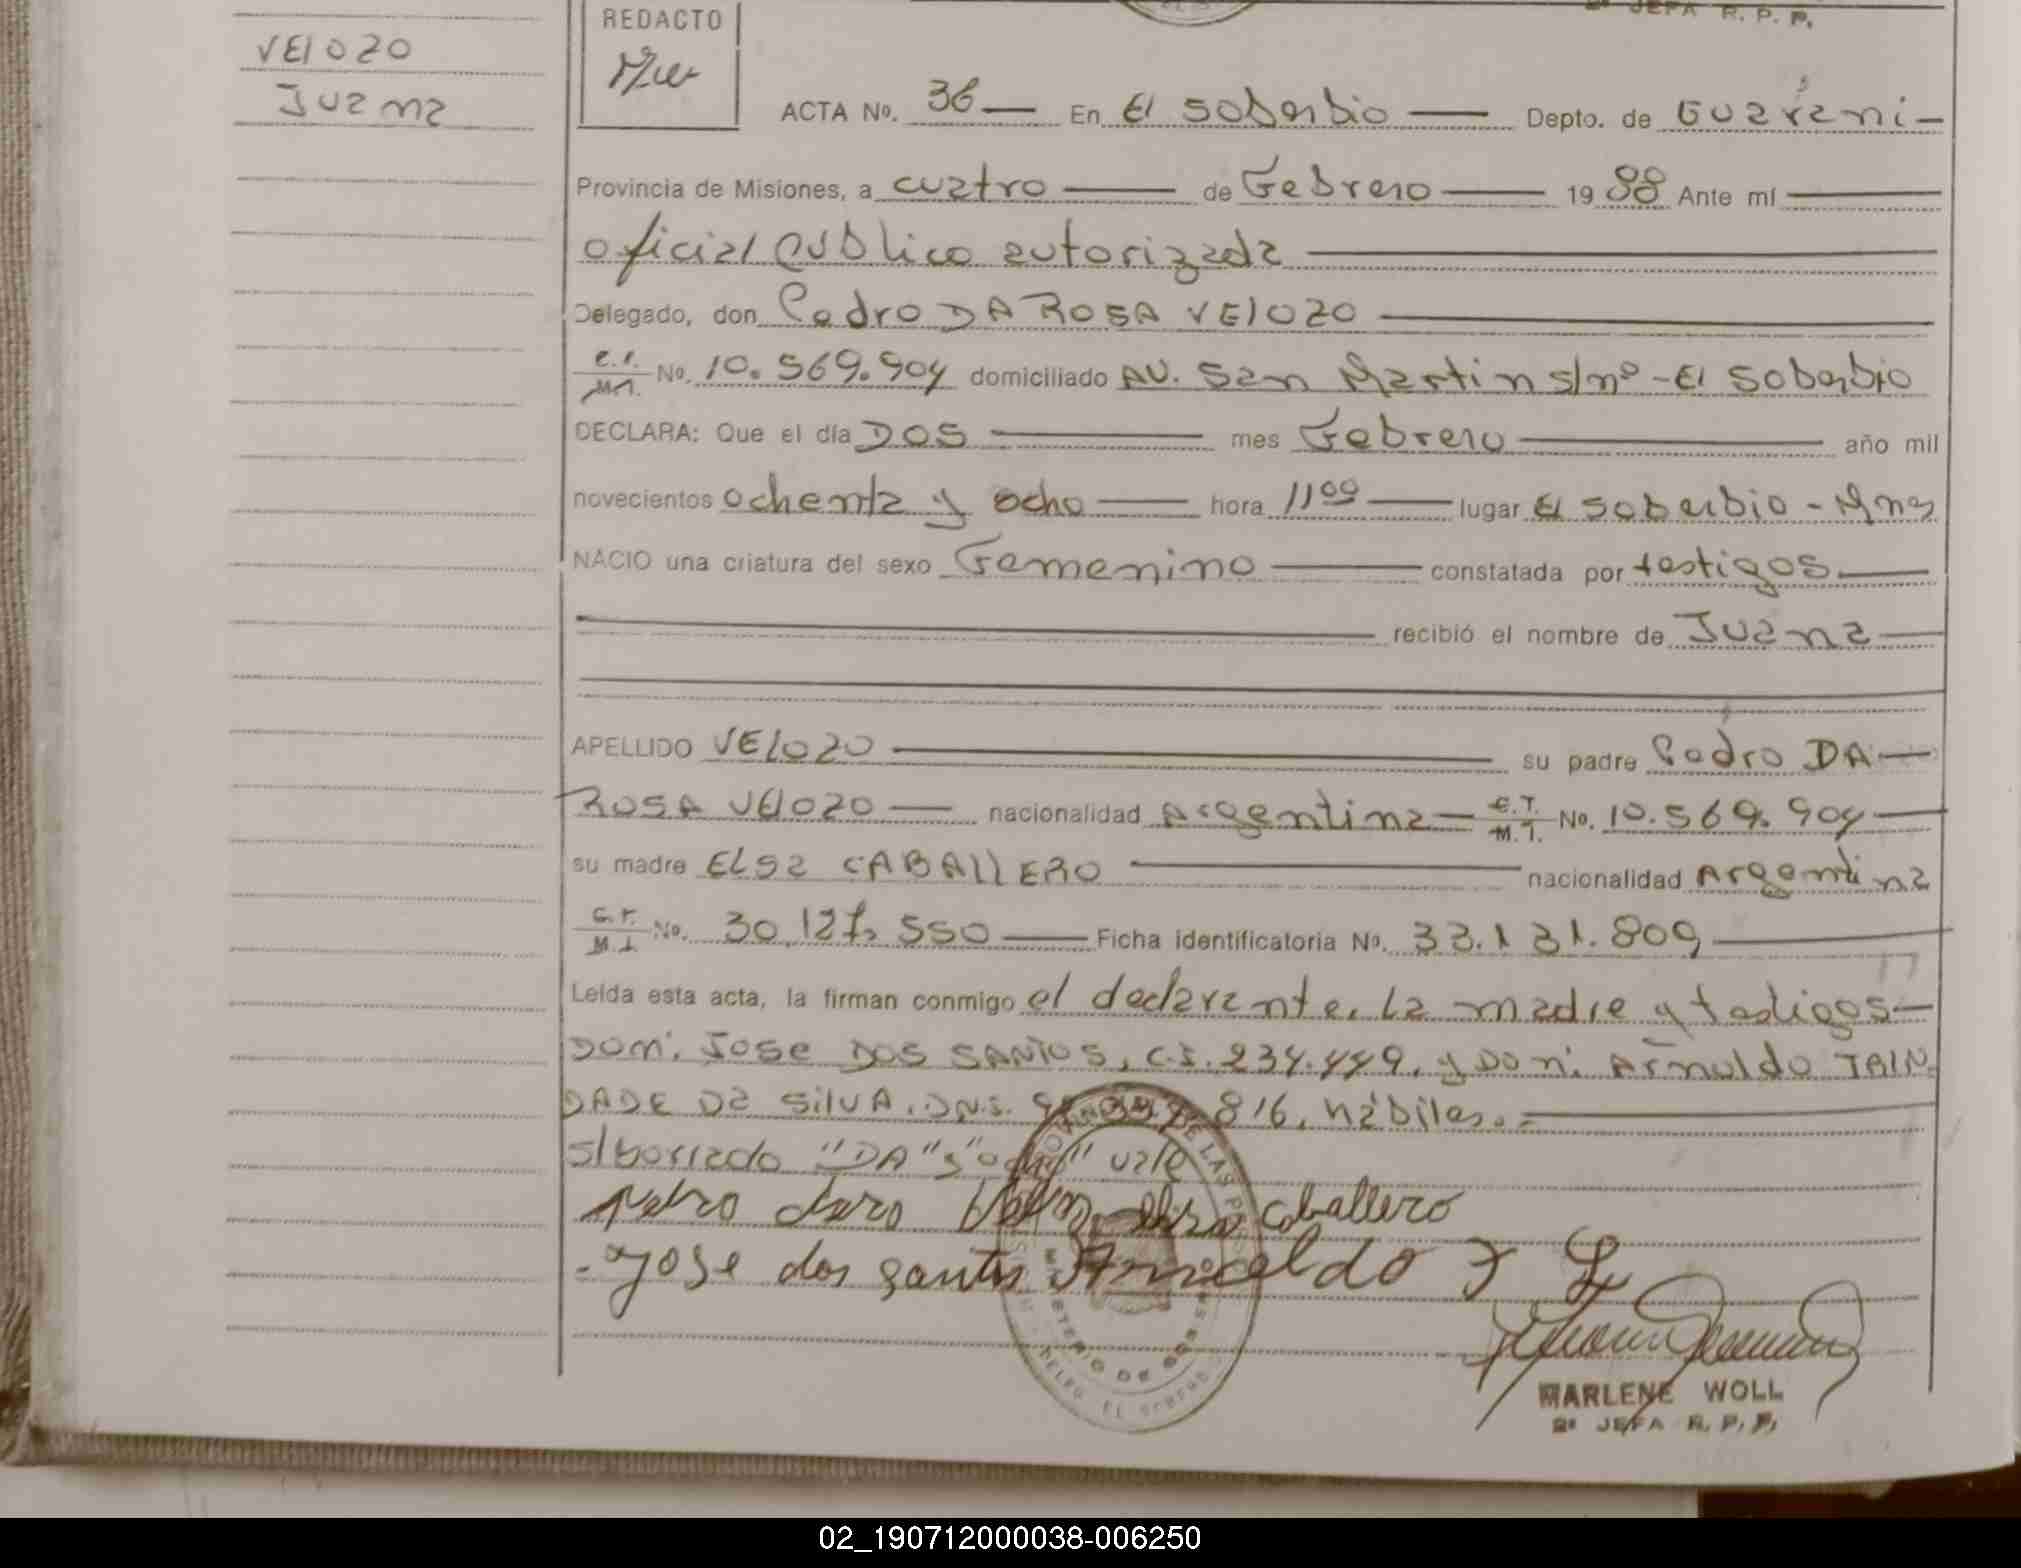 2ª JEFA R. P. P.
VELOZO
Juana
REDACTO
ACTA No. 36 En El Soberbio Depto. de Guaraní
Provincia de Misiones, a cuatro de Febrero 1988 Ante mí
oficial público autorizada
Delegado, don Pedro DA ROSA VELOZO
C.I. M.I. No. 10.569.904 domiciliado AV. San Martin s/nº - El Soberbio
DECLARA: Que el día DOS mes Febrero año mil
novecientos ochenta y ocho hora 11 00 lugar El Soberbio - Mnes
NACIO una criatura del sexo Femenino constatada por testigos
recibió el nombre de Juana
APELLIDO VELOZO su padre Pedro DA
ROSA VELOZO nacionalidad Argentina C.I. M.I. No. 10.569.904
su madre Elsa CABALLERO nacionalidad Argentina
C.I. M.I. No. 30.127.550 Ficha identificatoria No. 33.131.809
Leída esta acta, la firman conmigo el declarante, la madre y testigos
Don: Jose DOS SANTOS, C.I. 234.449, y Don: Arnoldo TRIN
DADE Da SILVA. DNI. 816, hábiles.=
s/borrado "DA" y "ocho" vale
caballero
Jose dos santos
MARLENE WOLL
2ª JEFA R. P. P.
02_190712000038-006250